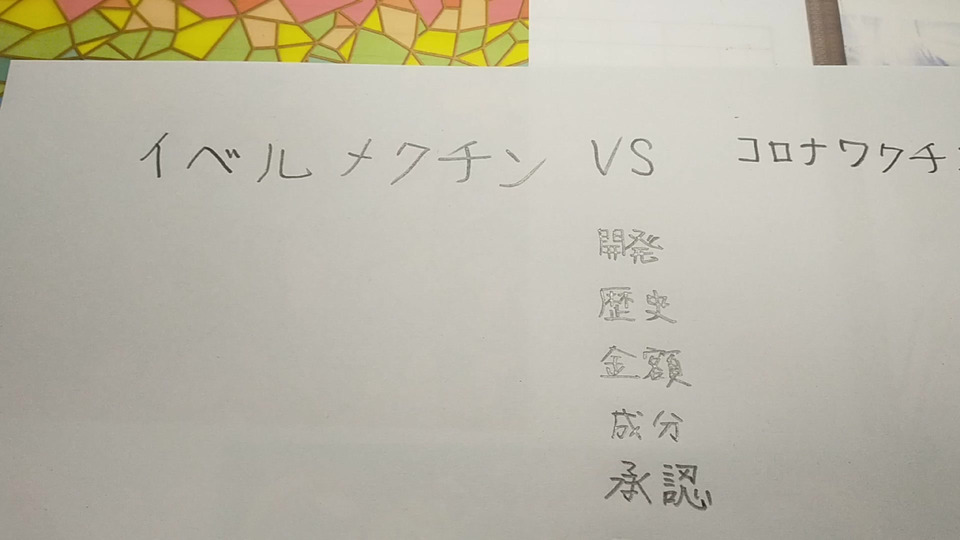 イベルメクチン VS コロナワクチン
開発
歴史
金額
成分
承認